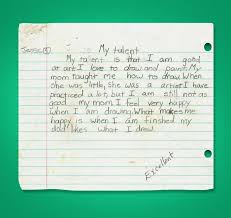 Jessie (8)
My talent
My talent is that I am good
at art I love to draw and paint. My
mom taught me how to draw When
she was little, she was a artist I have
practiced a lot, but I am still not as
good my mom I feel very happy
when I am drawing. What makes me
happy is when I am finished my
dad likes what I drew.
Excellent